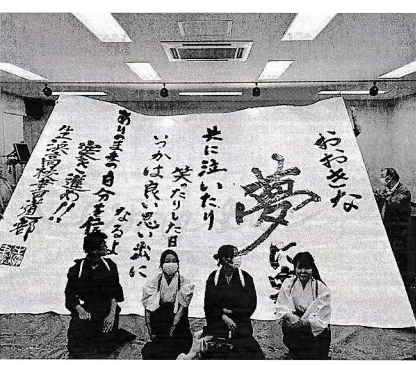 おおきな
夢
共に泣いたり
笑ったりした日
いつかは良い思い出に
なるよ
ありのままの自分を信
突き進め!!
生浜高校書道部